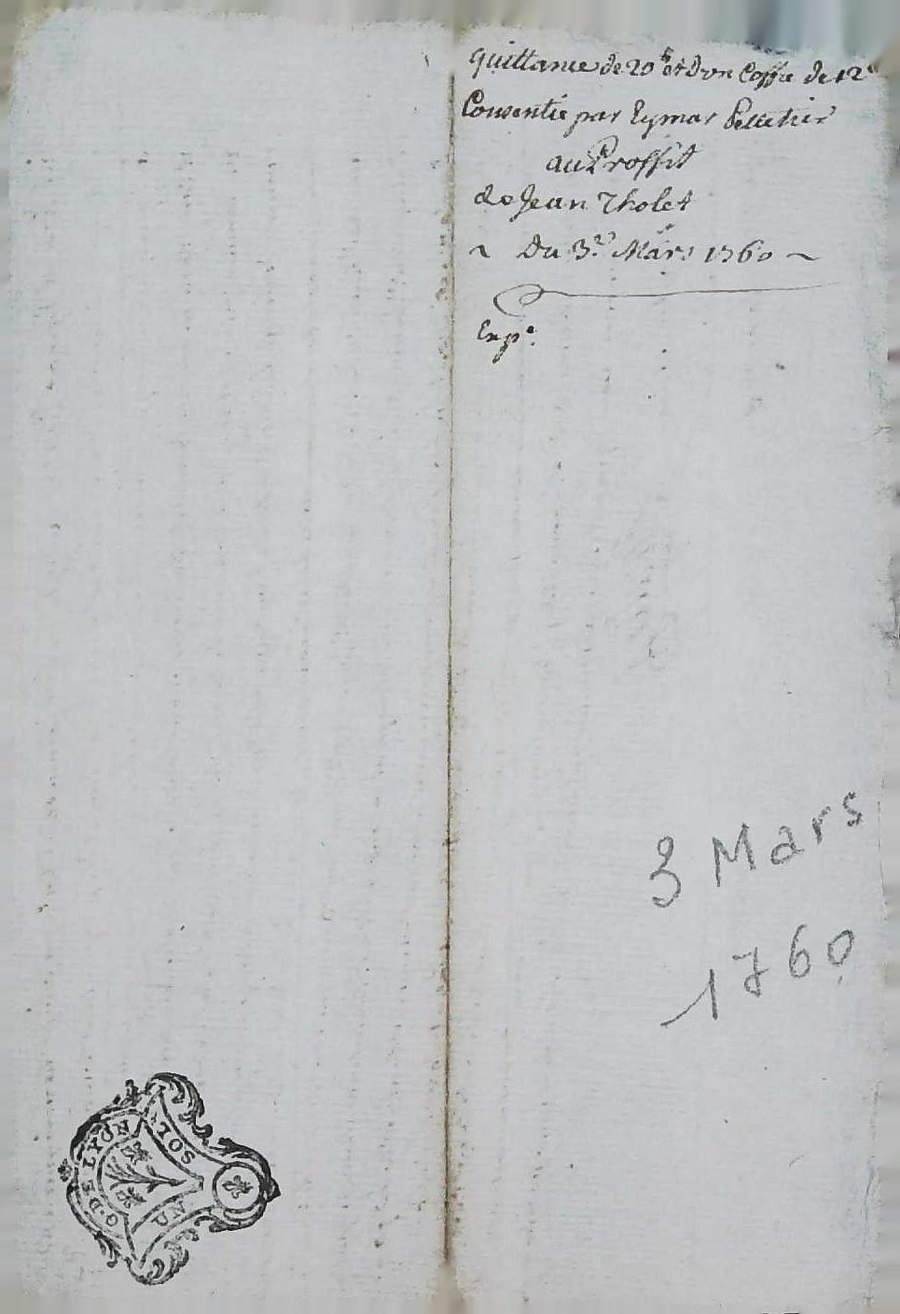 quittance de 20ᵗᵗ et d'vn Coffre de 12ᵗᵗ
Consentie par Eymar Pelletier
au Proffit
de Jean Tholet
~ Du 3.ᵉ Mars 1760 ~
Exp.ᵉ
3 Mars
1760
G. DE LYON
UN SOL.